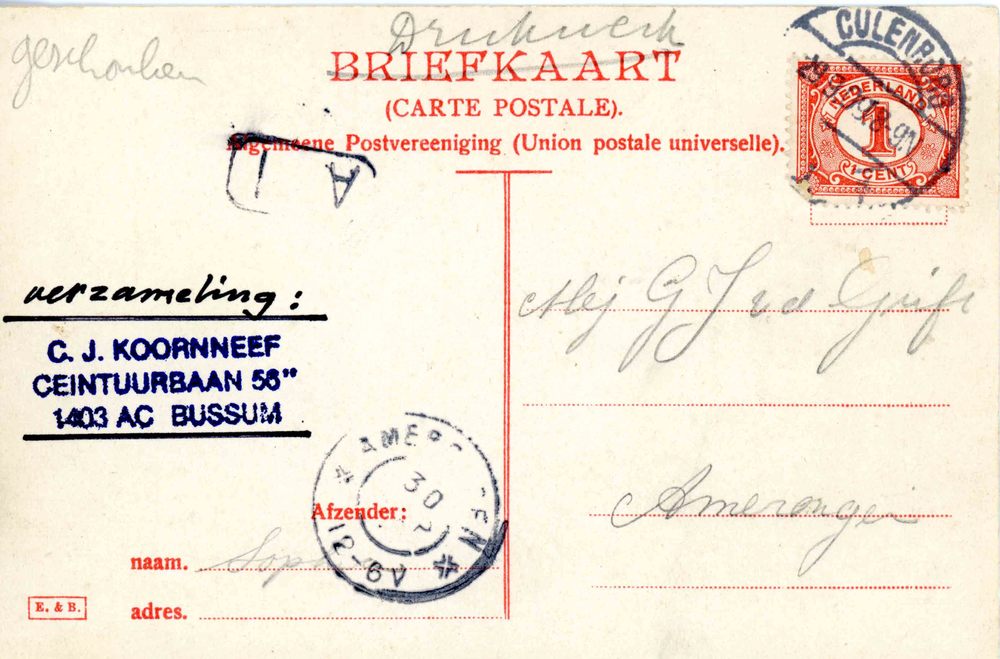 Drukwerk
BRIEFKAART
(CARTE POSTALE).
Algemeene Postvereeniging (Union postale universelle).
CULENBORG
NEDERLAND
1
1 CENT
A I
verzameling:
C. J. KOORNNEEF
CEINTUURBAAN 56"
1403 AC BUSSUM
Mej G J v d Grift
Amerongen
AMERONGEN
30
12-6V
Afzender:
naam. Soph
adres.
E. & B.